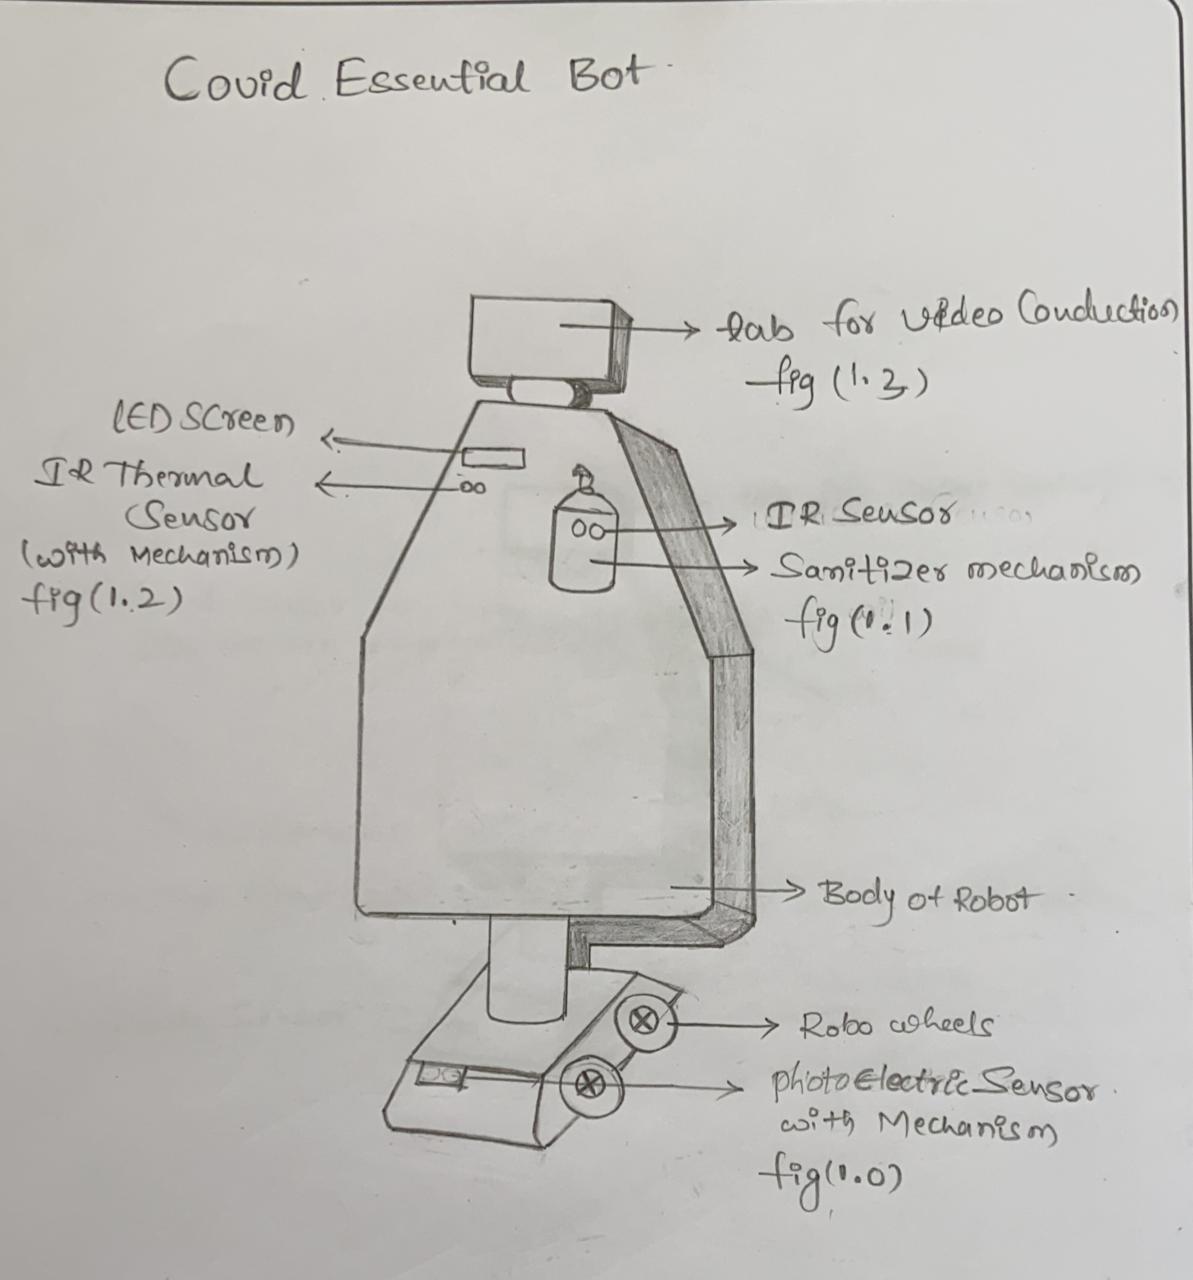 Covid Essential Bot
tab for video Conduction
fig (1.3)
LED SCreen
IR Thermal
Sensor
(with Mechanism)
fig (1.2)
IR Sensor
Sanitizer mechanism
fig (1.1)
Body of Robot
Robo wheels
photoElectric Sensor
with Mechanism
fig (1.0)